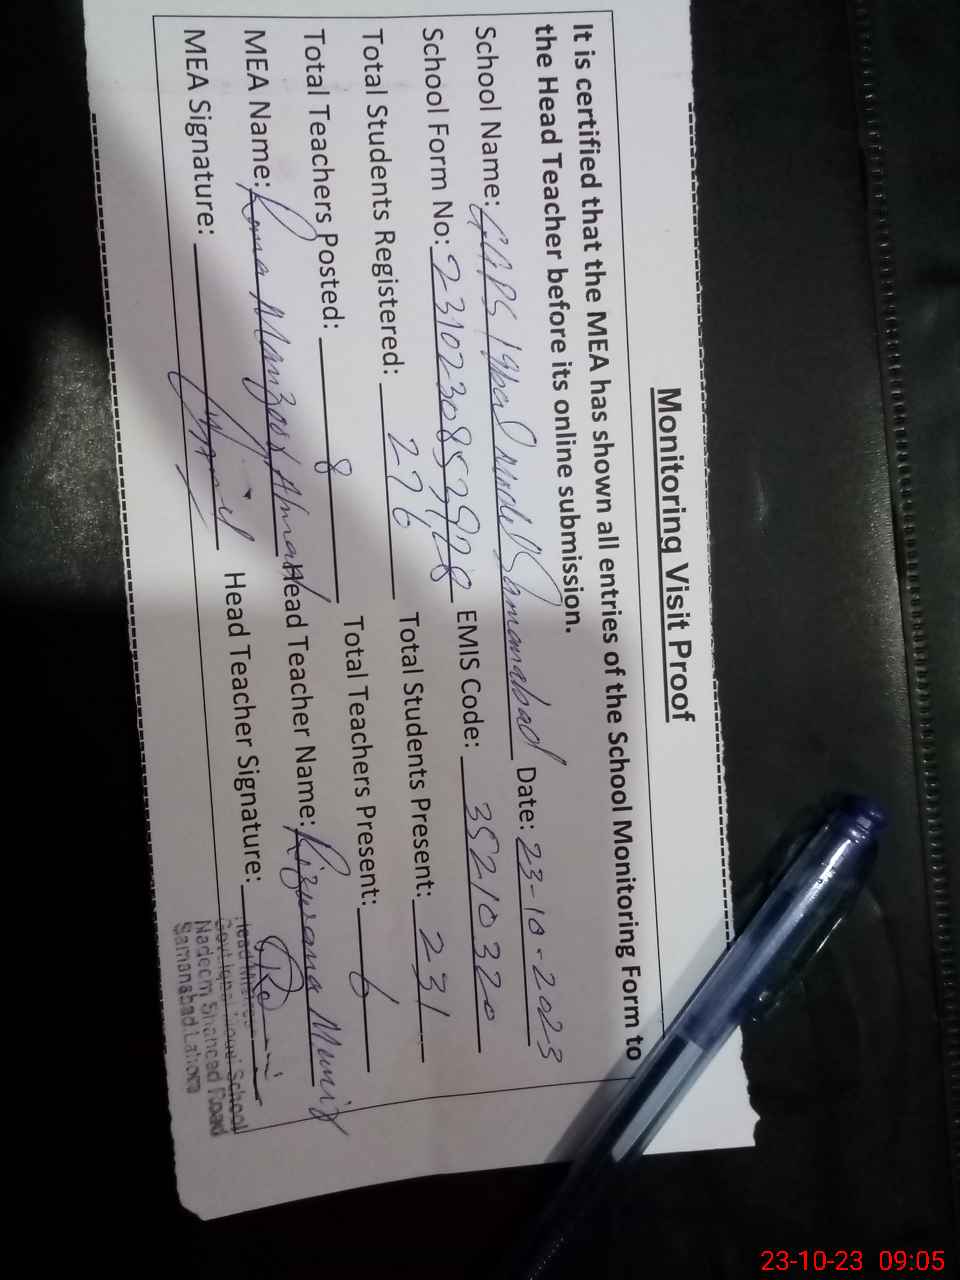 Monitoring Visit Proof
It is certified that the MEA has shown all entries of the School Monitoring Form to
the Head Teacher before its online submission.
School Name: Iqbal Model Samanabad Date: 23-10-2023
School Form No: 2310230853928 EMIS Code: 35210320
Total Students Registered: 276 Total Students Present: 231
Total Teachers Posted: 8 Total Teachers Present: 6
MEA Name: Manzoor Ahmad Head Teacher Name: Rizwana Munir
MEA Signature: Head Teacher Signature:
Head Mistress
Govt. Iqbal Model School
Nadeem Shaheed Road
Samanabad Lahore
23-10-23 09:05